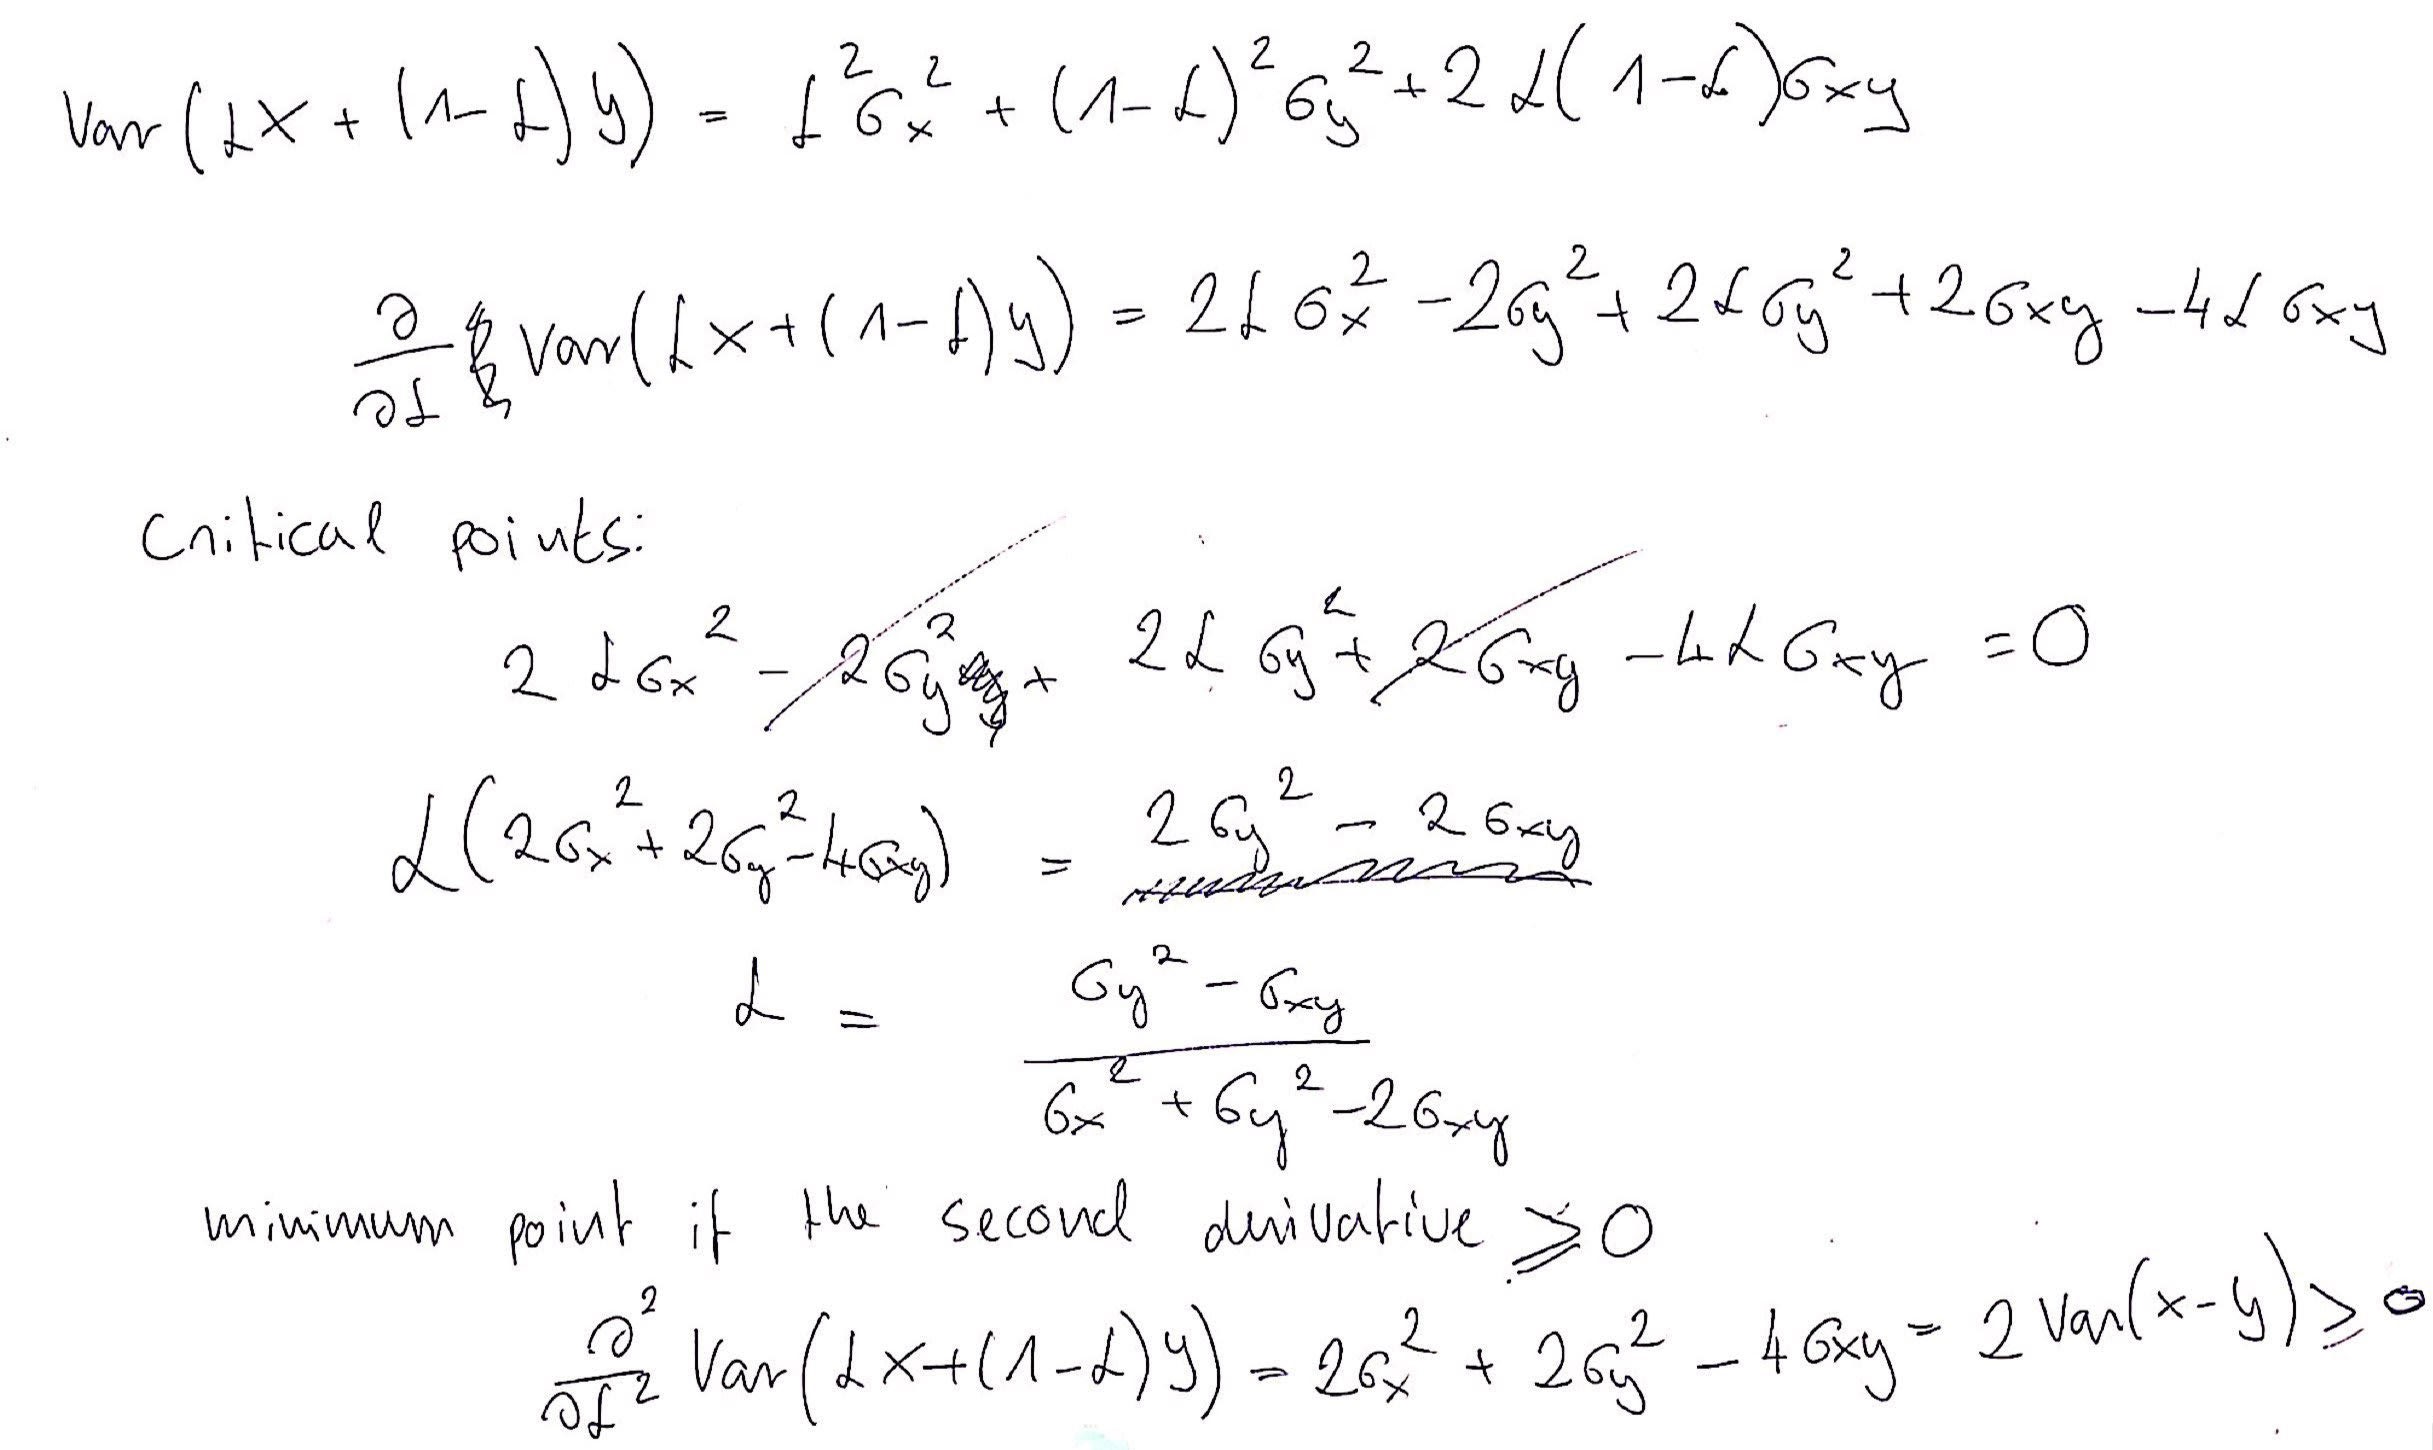 Var(αX + (1-α)y) = α²σx² + (1-α)²σy² + 2α(1-α)σxy
∂/∂α Var(αx + (1-α)y) = 2ασx² - 2σy² + 2ασy² + 2σxy - 4ασxy
Critical points:
2ασx² - 2σy² + 2ασy² + 2σxy - 4ασxy = 0
α(2σx² + 2σy² - 4σxy) = 2σy² - 2σxy
α = (σy² - σxy) / (σx² + σy² - 2σxy)
minimum point if the second derivative ≥ 0
∂²/∂α² Var(αx + (1-α)y) = 2σx² + 2σy² - 4σxy = 2 Var(x-y) ≥ 0